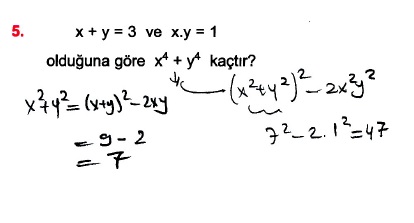 5. x + y = 3 ve x.y = 1
olduğuna göre x⁴ + y⁴ kaçtır?
(x²+y²)² - 2x²y²
x²+y² = (x+y)² - 2xy
7² - 2.1² = 47
= 9 - 2
= 7